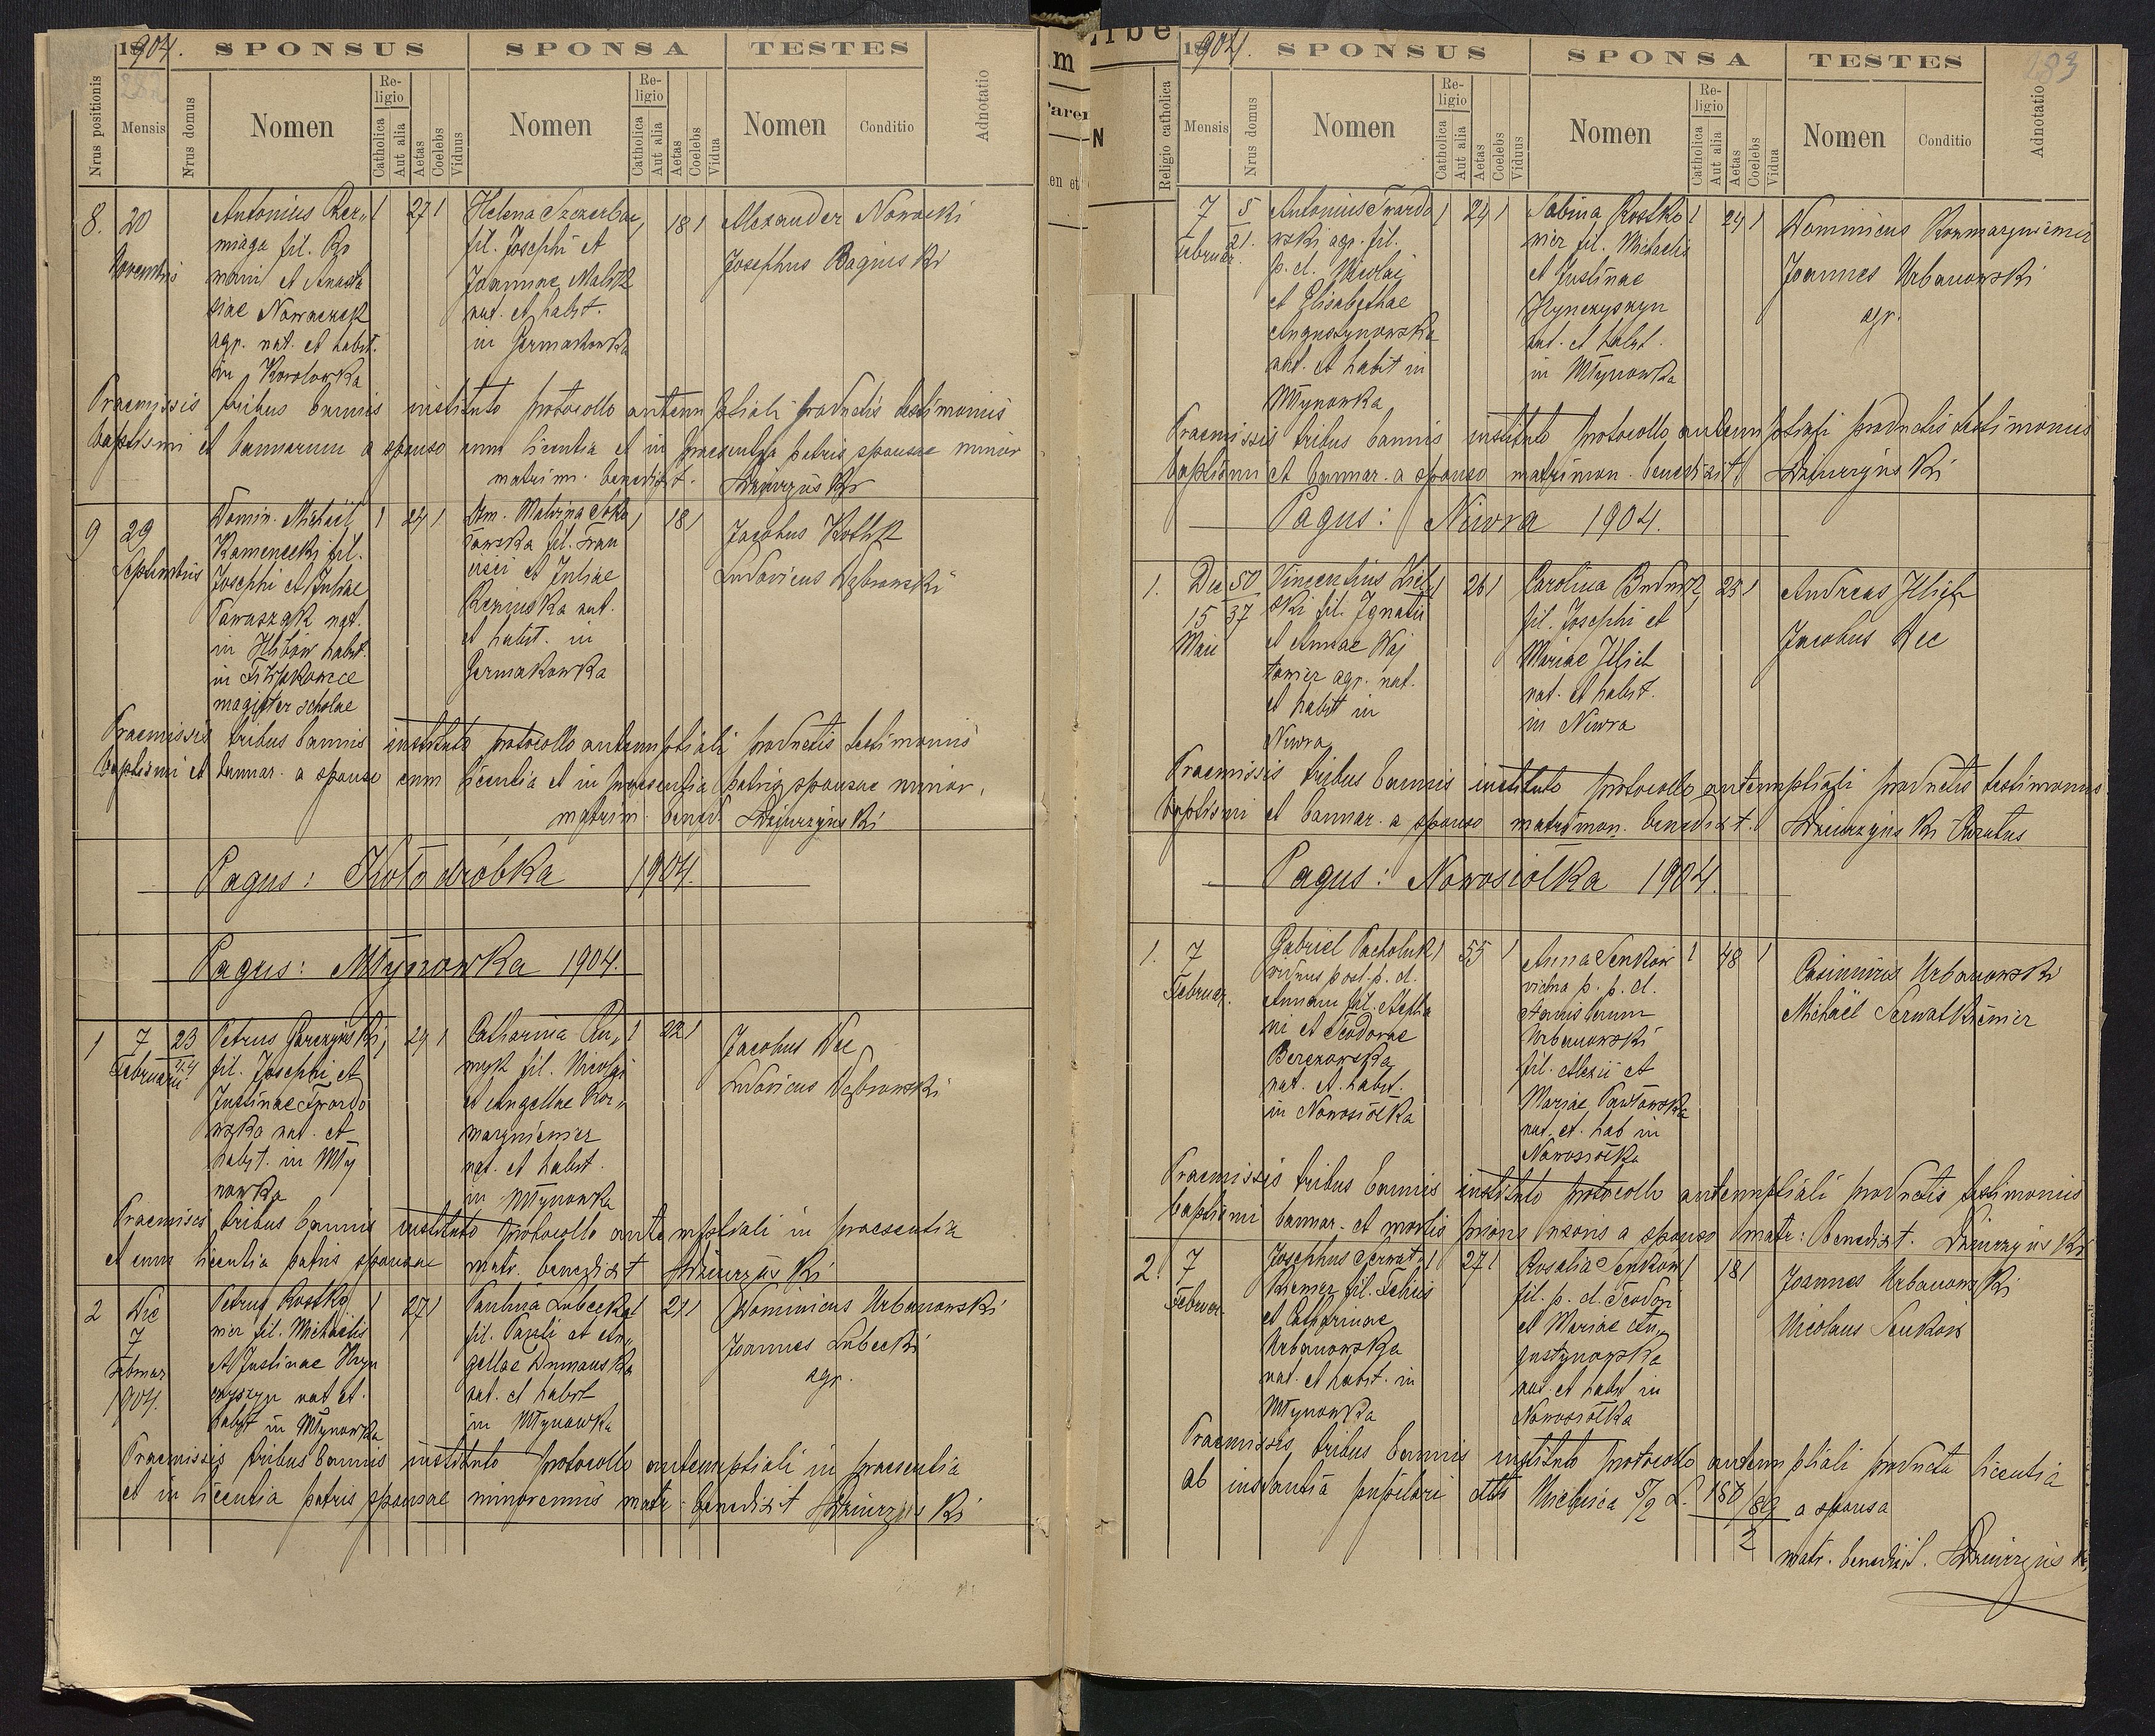 1904. SPONSUS SPONSA TESTES
Nrus positionis Mensis Nrus domus Nomen Religio Catholica Aut alia Aetas Coelebs Viduus Nomen Religio Catholica Aut alia Aetas Coelebs Vidua Nomen Conditio Adnotatio
8. 20 Novembris
Antonius
miaga fil. Ro
mani et Anasta
siae Nowaczek
agr. nat. et habit.
in Korolowka
1 27 1
Helena Szczerbac
fil. Josephi et
Joannae
nat. et habit.
in Germakowka
1 18 1
Alexander Nowacki
Josephus Baginski
Praemissis tribus bannis instituto protocollo antenuptiali productis testimoniis
baptismi et bannorum a sponso cum licentia et in praesentia patris sponsae minor
matrim. benedixit. Dziurzyński
9 29 Septembris
Domin. Michaël
Kamenecki fil.
Josephi et Juliae
nat.
in habit.
in Filipkowce
magister scholae
1 24 1
Am. Malvina Soko
łowska fil. Fran
cisci et Juliae
nat.
et habit. in
Germakowka
1 18 1
Jacobus
Ludovicus Dąbrowski
Praemissis tribus bannis instituto protocollo antenuptiali productis testimoniis
baptismi et bannar. a sponso cum licentia et in praesentia patris sponsae minor.
matrim. bened. Dziurzyński
Pagus: Kołodróbka 1904.
Pagus: Młynowka 1904.
1 7 Februarii 23
Petrus
fil. Josephi et
Justinae Twardo
wska nat. et
habit. in Mły
nowka
1 24 1
Catharina
fil. Nicolai
et Angellae Kor
marzniemier
nat. et habit.
in Młynowka
1 22 1
Jacobus Dec
Ludovicus Dąbrowski
Praemissis tribus bannis instituto protocollo antenuptiali in praesentia
et cum licentia patris sponsae matr. benedixit Dziurzyński
2 Die
7
Februar
1904.
Petrus Rostko
nier fil. Michaelis
et Justinae Hyn
czyszyn nat. et
habit in Młynowka
1 27 1
Paulina Lubecka
fil. Pauli et An
gellae Dumanska
nat. et habit
in Młynowka
1 21 1
Dominicus Urbanowski
Joannes Lubecki
agr.
Praemissis tribus bannis instituto protocollo antenuptiali in praesentia
et in licentia patris sponsae minorennis matr. benedixit Dziurzyński
1904. SPONSUS SPONSA TESTES 183
Religio catholica Mensis Nrus domus Nomen Religio Catholica Aut alia Aetas Coelebs Viduus Nomen Religio Catholica Aut alia Aetas Coelebs Vidua Nomen Conditio Adnotatio
7 Februar. 5 21.
Antonius Twardo
wski agr. fil.
p. d. Nicolai
et Elisabethae
Augustynowska
nat. et habit in
Młynowka
1 24 1
Sabina Rostko
nier fil. Michaelis
et Justinae
Hynczyszyn
nat. et habit.
in Młynowka
1 24 1
Dominicus Kormarzniemier
Joannes Urbanowski
agr.
Praemissis tribus bannis instituto protocollo antenuptiali productis testimoniis
baptismi et bannar. a sponso matrimon. benedixit Dziurzyński
Pagus: Niwra 1904.
1. Die
15
Maii
50
37
Vincentius
ski fil. Ignatii
et Annae Woj
towicz agr. nat.
et habit in
Niwra
1 26 1
Carolina
fil. Josephi et
Mariae Illich
nat. et habit.
in Niwra
1 23 1
Andreas Illich
Jacobus Dec
Praemissis tribus bannis instituto protocollo antenuptiali productis testimoniis
baptismi et bannar. a sponso matrimon. benedixit. Dziurzyński Curatus
Pagus: Nowosiołka 1904.
1. 7
Februar.
Gabriel Pacholuk
viduus post. p. d.
Annam fil. Stepha
ni et Teodorae
Berezowska
nat. et. habit.
in Nowosiołka
1 55 1
Anna Senkow
vidua p. p. d.
Stanislaum
Urbanowski
fil. Alexii et
Mariae Pawłowska
nat. et. hab in
Nowosiołka
1 48 1
Casimirus Urbanowski
Michaël Serwatkiemier
Praemissis tribus bannis instituto protocollo antenuptiali productis testimoniis
baptismi bannar. et mortis prioris uxoris a sponso matr: benedixit. Dziurzyński
2. 7
Februar.
Josephus Serwat
kiemier fil.
et Catharinae
Urbanowska
nat. et habit. in
Młynowka
1 27 1
Rosalia Senkow
fil. p. d. Teodori
et Mariae Au
gustynowska
nat. et habit in
Nowosiołka
1 18 1
Joannes Urbanowski
Nicolaus Senkow
Praemissis tribus bannis instituto protocollo antenuptiali producta licentia
ab instantia pupilari a sponsa
matr. benedixit. Dziurzyński